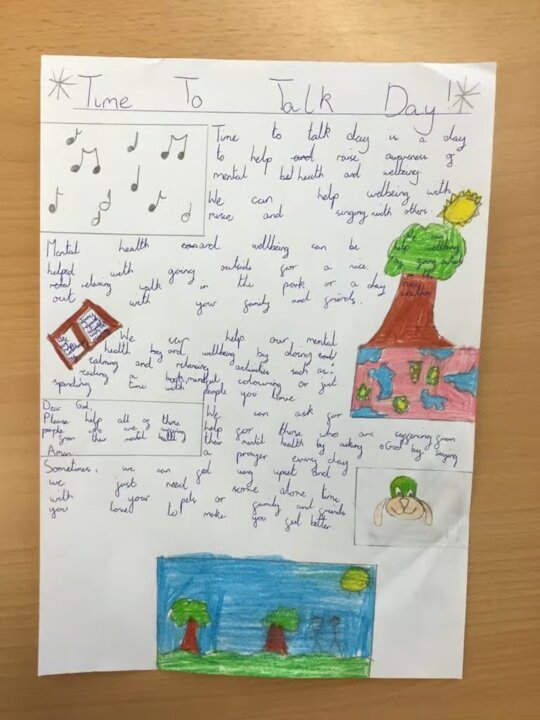 Time To Talk Day!
Time to talk day is a day
to help raise awareness of
mental health and wellbeing.
We can help wellbeing with
music and singing with others.
Mental health and wellbeing can be
helped with going outside for a nice
relaxing walk in the park or a day
out with your family and friends.
help wellbeing
by going
We help our mental
health and wellbeing by doing
calming and relaxing activities such as:
reading a book, colouring or just
spending time with people you love.
Dear God,
Please help all of those
people who are suffering
from their mental health
Amen
We can ask for
help for those who are suffering from
their mental health by asking God by saying
a prayer every day
Sometimes, we can get very upset and
we just need some alone time,
with your pets or family and friends
you love to make you feel better.